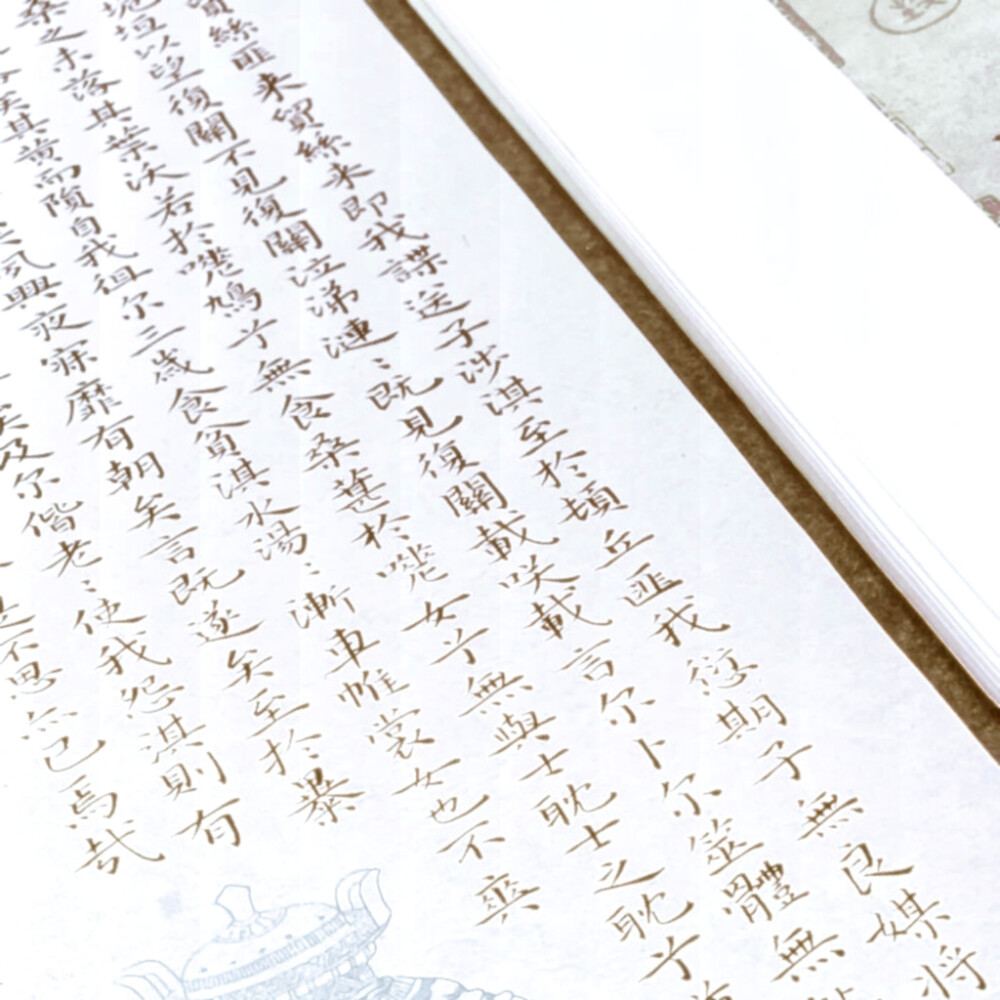 貿絲匪来貿絲来即我謀送子涉淇至於頓丘匪我愆期子無良媒将
垝垣以望復關不見復關泣涕漣〻既見復關載咲載言尔卜尔筮體無
桑之未落其葉沃若於嗟鳩兮無食桑葚於嗟女兮無與士耽士之耽兮
矣其黄而隕自我徂尔三歲食貧淇水湯〻漸車帷裳女也不爽
夙興夜寐靡有朝矣言既遂矣至於暴
矣及尔偕老〻使我怨淇則有
不思亦已焉哉